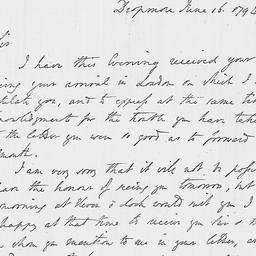 Dropmore June 16. 1794
Sir
I have this Evening received your
your arrival in London on which I
you, and to express at the same time
for the trouble you have taken
the letter you were so good as to forward
I am very sorry that it will not be possible
have the honour of seeing you tomorrow, but
morning at Eleven o'clock would suit you I
happy at that time to receive you
whom you mention to me in your letter, and